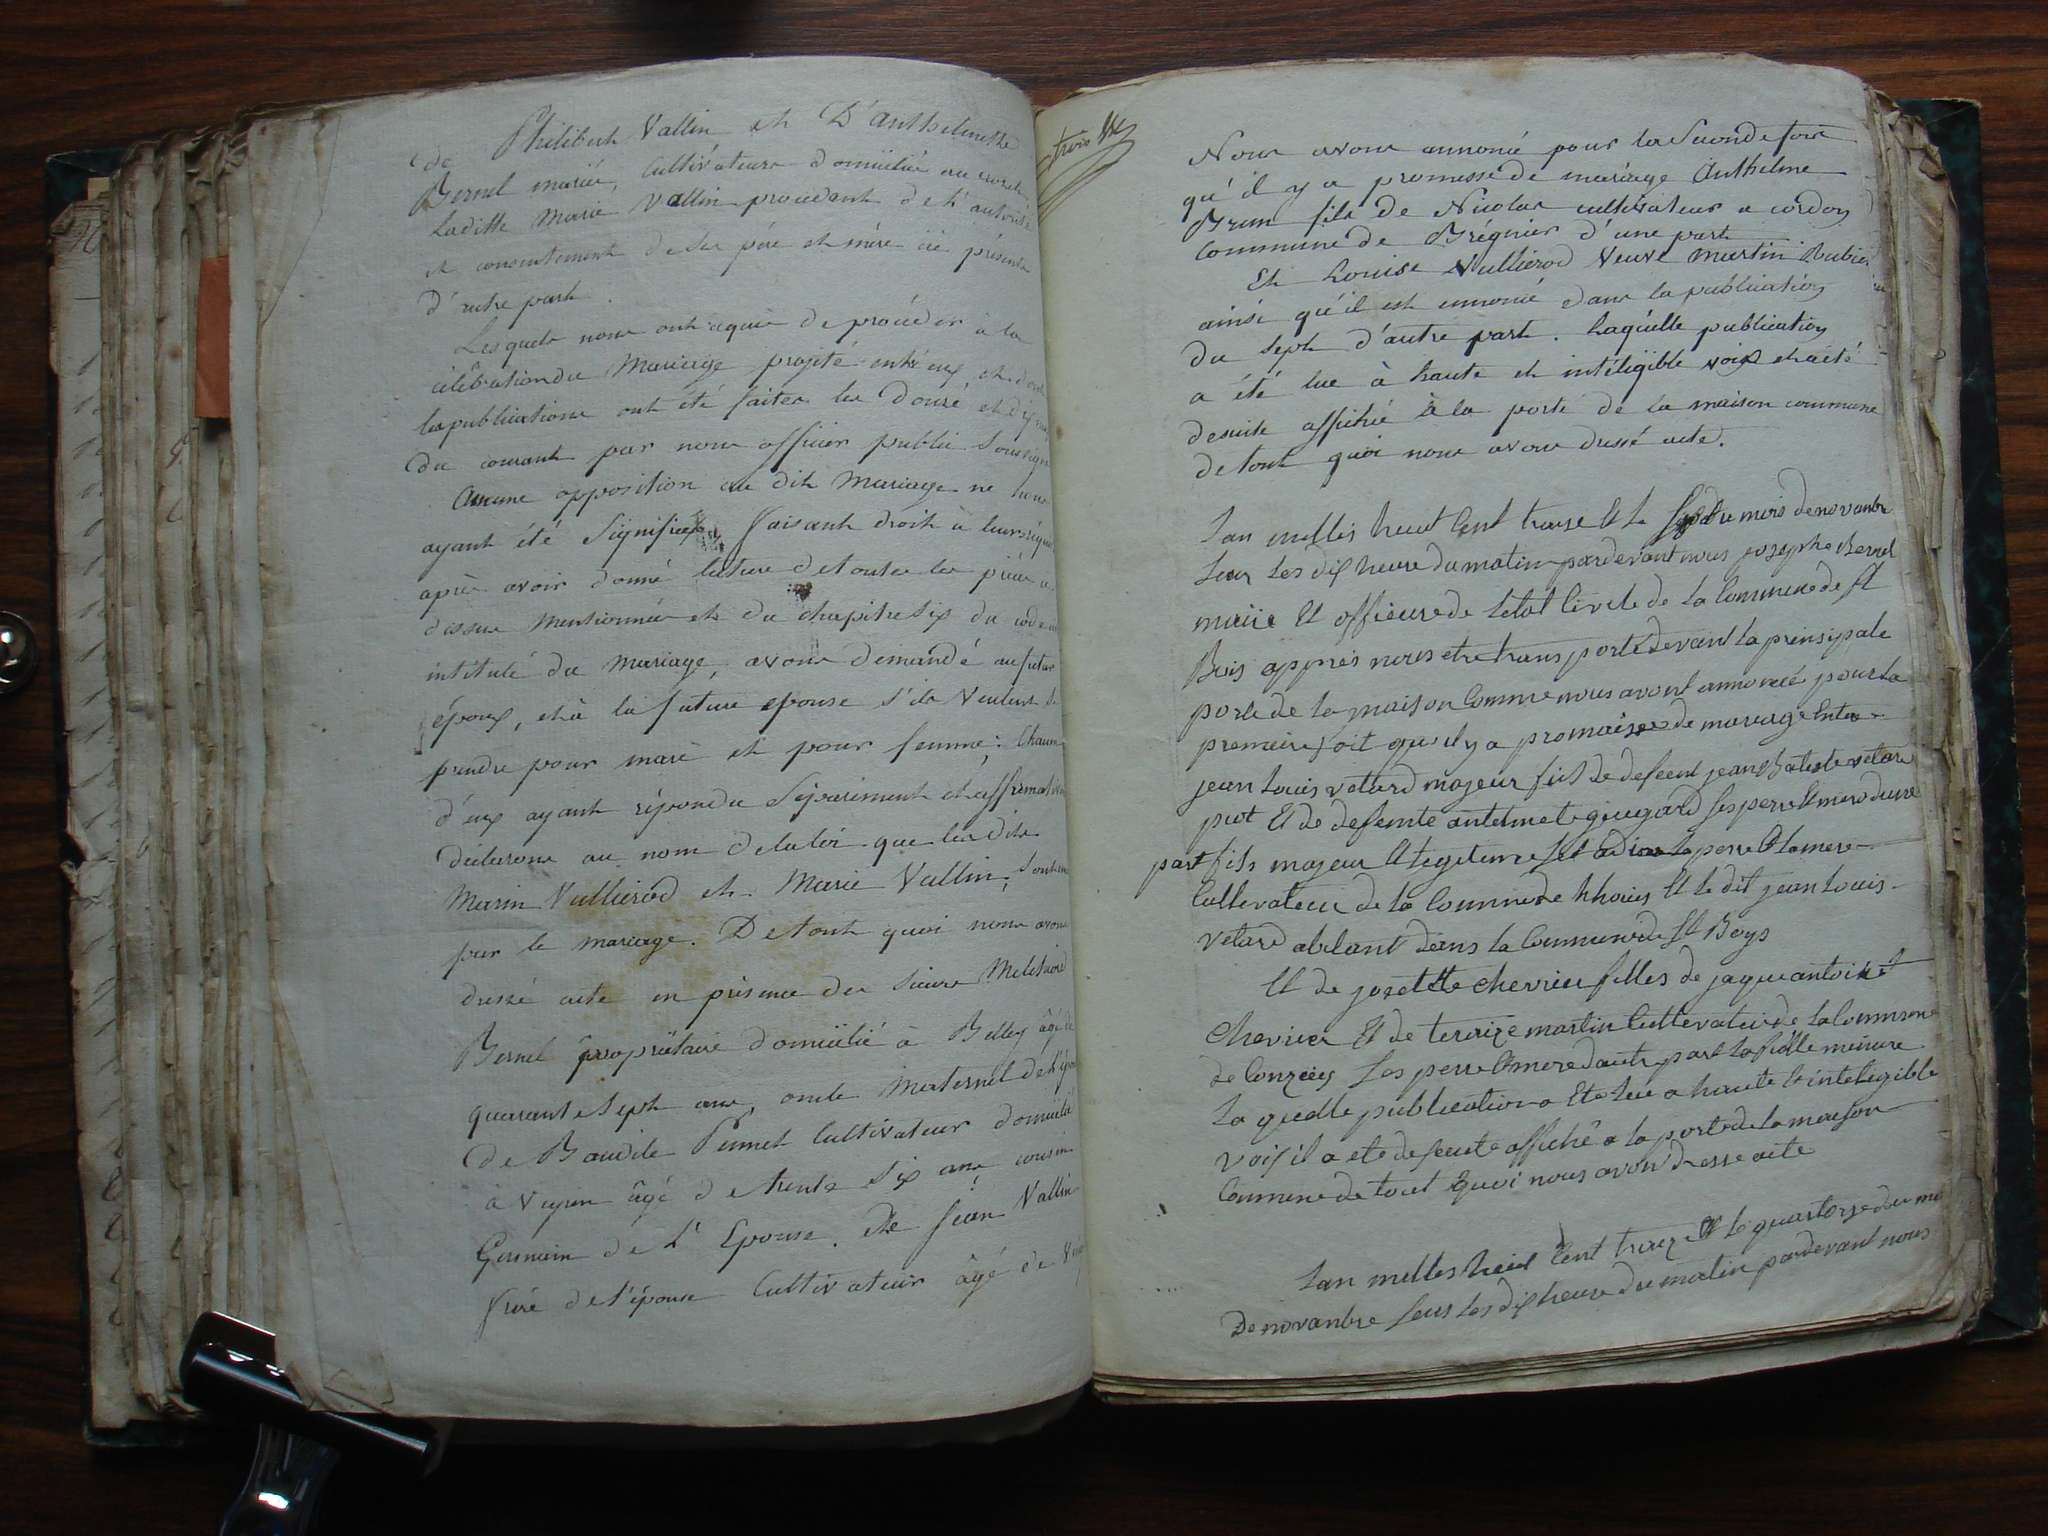 de Philibert Vallin et D'anthelmette
Bernel mariés, Cultivateurs domicilié au
Laditte Marie Vallin procédant de l'autorité
et consentement de ses père et mère ici présents
d'autre part.
Lesquels nous ont requis de procéder à la
célébration du Mariage projeté entr'eux et dont
les publications ont été faites les Douze et dix neuf
du courant par nous officier public Soussigné
Aucune opposition au dit Mariage ne nous
ayant été Signifiée, faisant droit à leur réquis
après avoir donné lecture de toutes les pièces ci
dessus Mentionnées et du chapitre six du code
intitulé du Mariage, avons demandé au futur
époux, et à la future épouse s'ils veulent se
prendre pour mari et pour femme; Chacun
d'eux ayant répondu Séparément et affirmativ
déclarons au nom de la loi que les dits
Marin Vullierod et Marie Vallin, sont unis
par le mariage. De tout quoi nous avons
dressé acte en présence des sieurs
Bernel propriétaire domicilié à Belley âgé de
quarante sept ans, oncle maternel de l'épouse
De Baudile Pinnet Cultivateur domicilié
à veyrin âgé de trente six ans, cousin
Germain de l'Epouse. De Jean Vallin
frère de l'épouse Cultivateur âgé de
trois
Nous avons annoncé pour la Seconde fois
qu'il y a promesse de mariage Anthelme
Brun fils de Nicolas cultivateur a cordon
Commune de Brégnier d'une part
Et Louise Vullierod Veuve Martin Rubied
ainsi qu'il est ennoncé dans la publication
du Sept d'autre part. Laquelle publication
a été lue à haute et intéligible voix et a été
desuite affiché à la porte de la maison commune
de tout quoi nous avons dressé acte.
Lan milles heuit Cent treise Et le du mois de novanbre
Seur les dix heure du matin pardevant nous josephe Bernel
maiie Et officiere de letat Civile de la Commune de St
Bois apprés nous etre transporté devant la prensipale
porte de la maison Comme nous avont annoncé pour la
premeire foit queil y a promaisse de mariage Entre
jean Louis vetard majeur fiis de defeent jean batiste vetard
piot Et de defeente antelmete giugard ses perre Et mere dune
part fils majeur Et legiteme perre Et la mere
Cultevateur de la Commune de hhoies Et le dit jean Louis
vetard abitant dans la Commune de St Boys
Et de josette chevrieu filles de jaque antoine
Chevrier Et de tereize martin Cultevateur de la Commune
de Conzieu Ses perre Et mere dautre part la fielle mineure
La quelle publication a Ete lue a haute Et intelegible
voix il a ete de seuite affiché a la porte de la maison
Commene de tout quoi nous avons dresse acte
Lan milles heuit Cent treize Et le quatorze du moi
De novanbre Seur les dix heure du matin pardevant nous